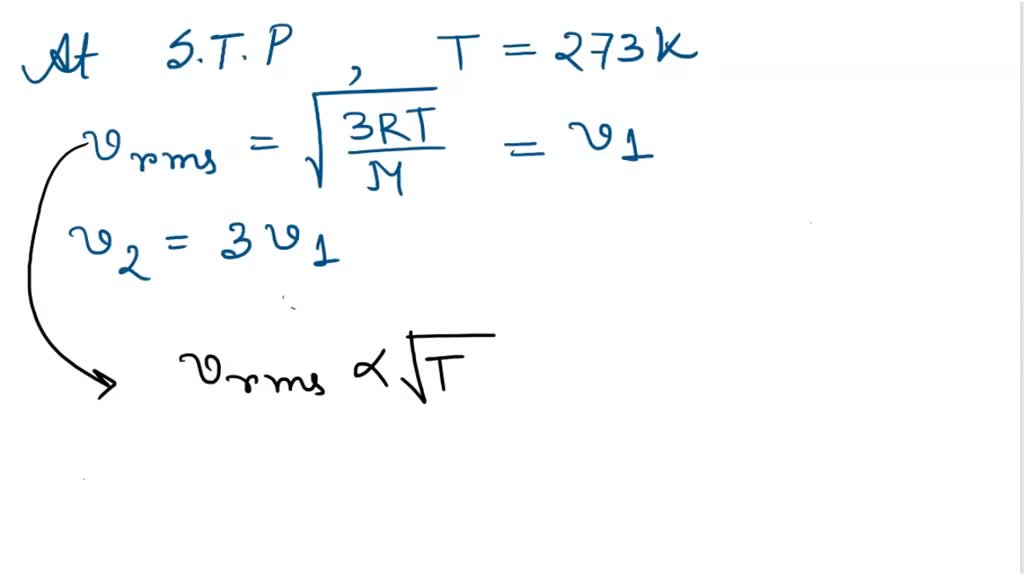 At S.T.P , T = 273K
v_rms = √(3RT/M) = v_1
v_2 = 3v_1
v_rms ∝ √T